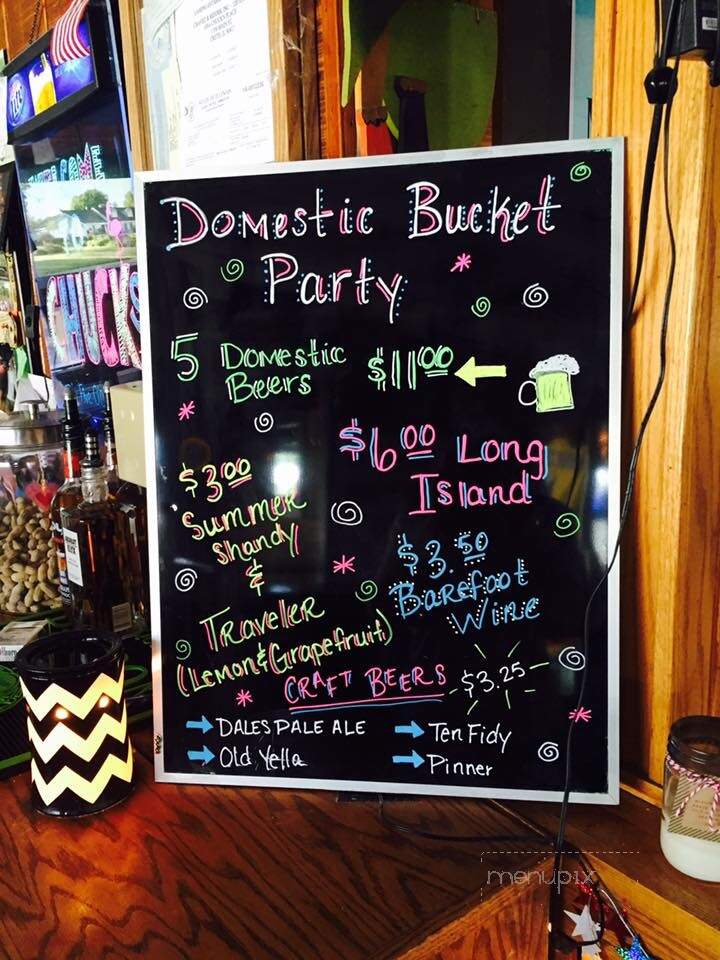 Domestic Bucket
Party
5 Domestic
Beers
$11.00
$6.00 Long
Island
$3.00
Summer
Shandy
&
Traveller
(Lemon & Grapefruit)
$3.50
Barefoot
Wine
CRAFT BEERS $3.25
DALES PALE ALE
Old Yella
Ten Fidy
Pinner
CHUCKS
menupix